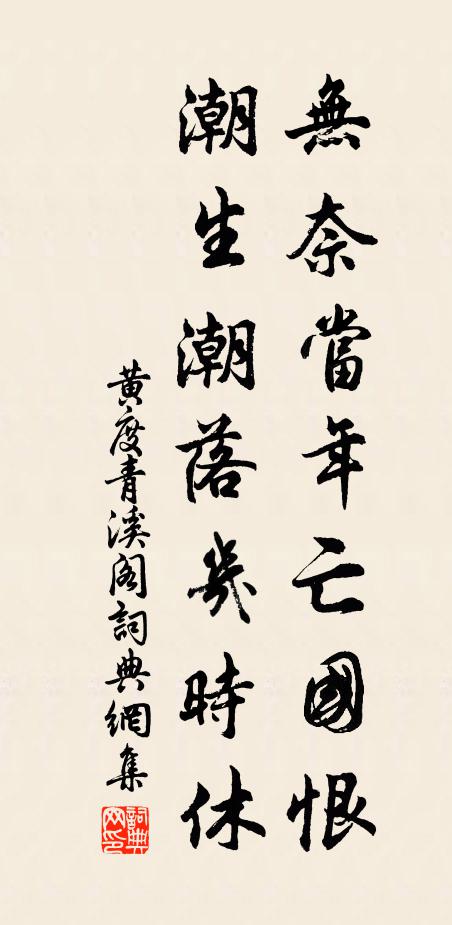 無奈當年亡國恨
潮生潮落幾時休
黃度青溪閣詞典網集
詞典网印